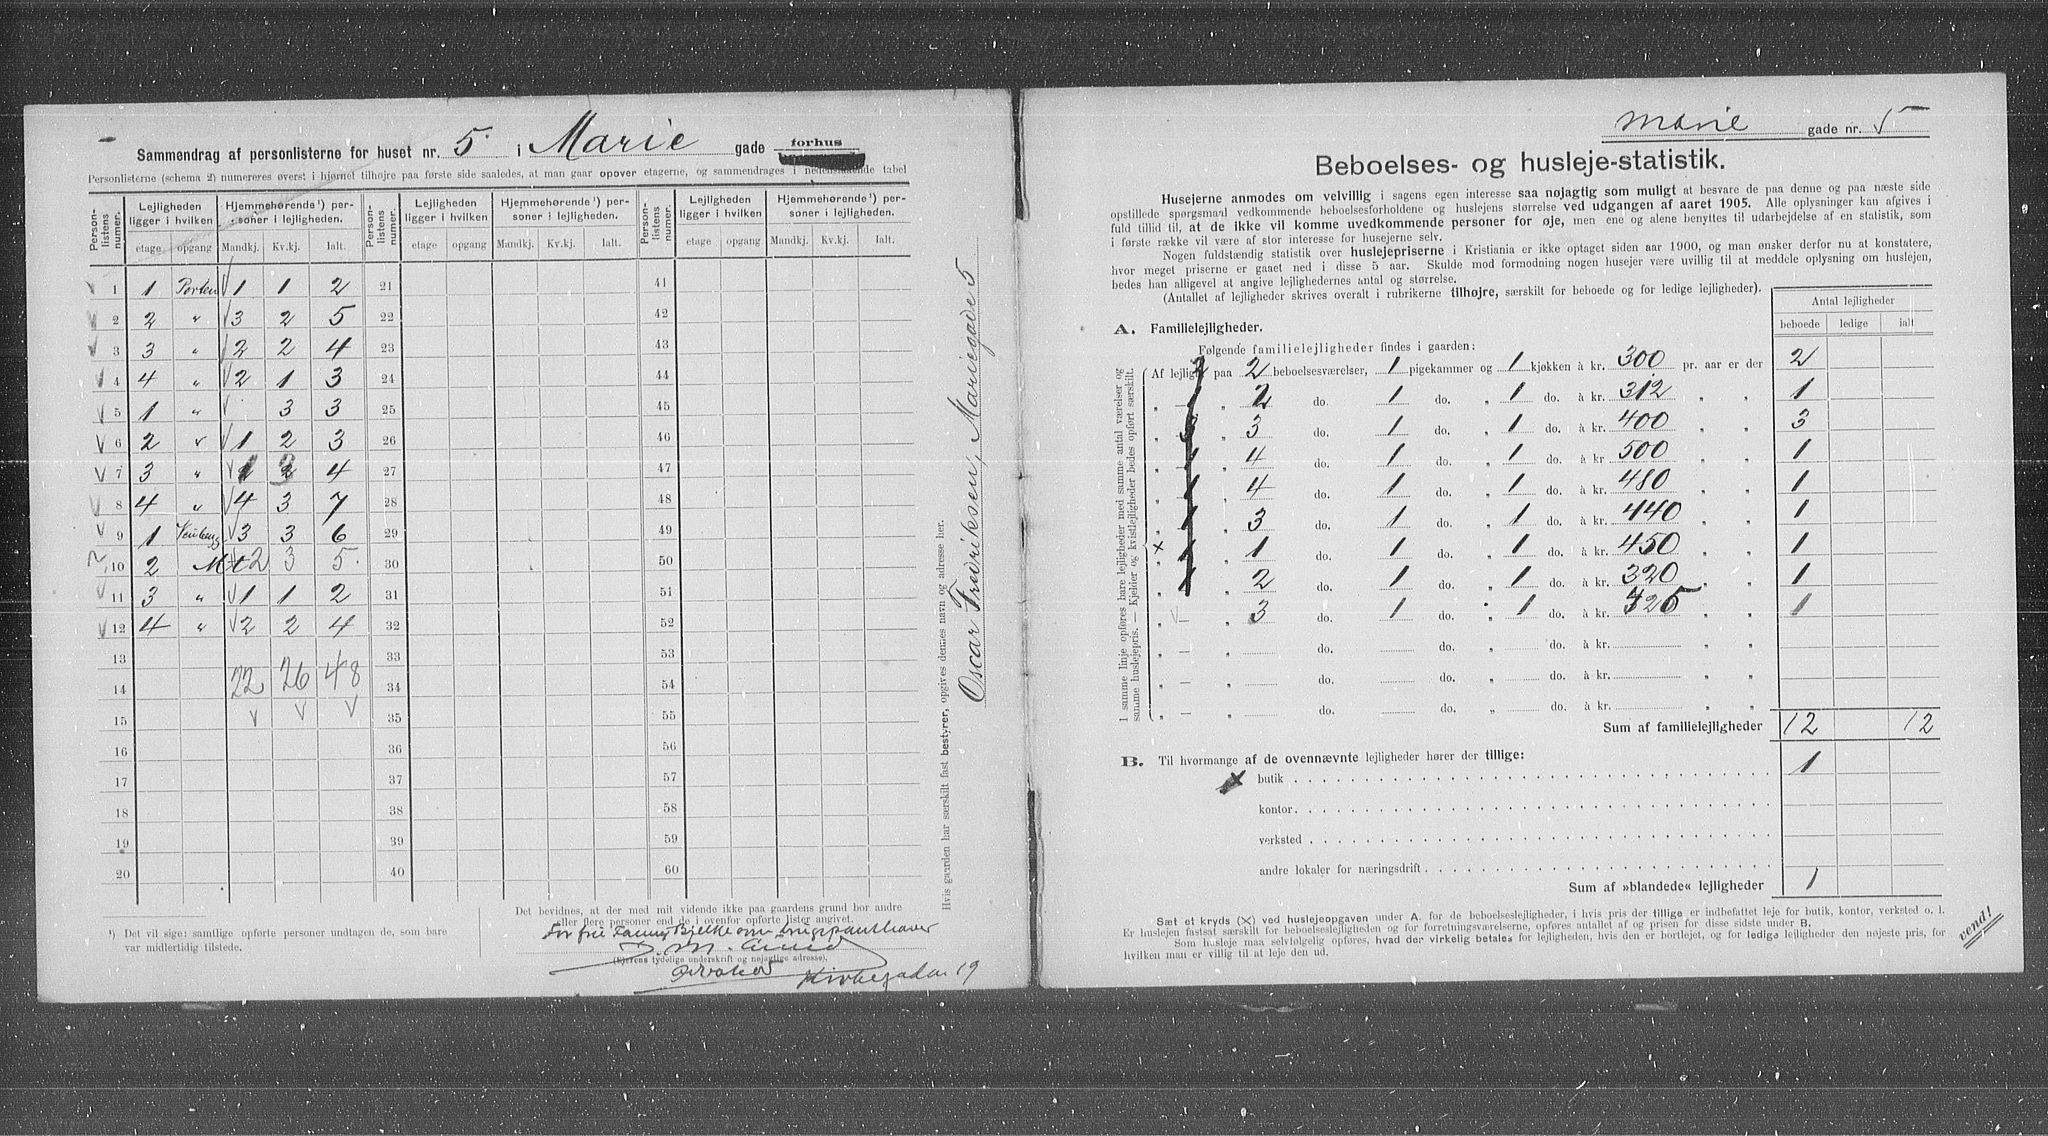 Sammendrag af personlisterne for huset nr. 5 i Marie gade forhus
Personlisterne (schema 2) numereres øverst i hjørnet tilhøjre paa første side saaledes, at man gaar opover etagerne, og sammendrages i nedenstaaende tabel
Person-listens numer. Lejligheden ligger i hvilken Hjemmehørende ¹) personer i lejligheden. Person-listens numer. Lejligheden ligger i hvilken Hjemmehørende ¹) personer i lejligheden. Person-listens numer. Lejligheden ligger i hvilken Hjemmehørende ¹) personer i lejligheden.
etage opgang Mandkj. Kv.kj. Ialt. etage opgang Mandkj. Kv.kj. Ialt. etage opgang Mandkj. Kv.kj. Ialt.
1 1 Porten 1 1 2 21 41
2 2 " 3 2 5 22 42
3 3 " 2 2 4 23 43
4 4 " 2 1 3 24 44
5 1 " 3 3 25 45
6 2 " 1 2 3 26 46
7 3 " 1 3 4 27 47
8 4 " 4 3 7 28 48
9 1 3 3 6 29 49
10 2 2 3 5 30 50
11 3 " 1 1 2 31 51
12 4 " 2 2 4 32 52
13 33 53
14 22 26 48 34 54
15 35 55
16 36 56
17 37 57
18 38 58
19 39 59
20 40 60
¹) Det vil sige: samtlige opførte personer undtagen de, som bare
var midlertidig tilstede.
Det bevidnes, at der med mit vidende ikke paa gaardens grund bor andre
eller flere personer end de i ovenfor opførte lister angivet.
For frk Fanny Bjelke som brugspanthaver
(Ejerens tydelige underskrift og nøjagtige adresse).
Kirkegaden 19
Hvis gaarden har særskilt fast bestyrer, opgives dennes navn og adresse her.
Oscar Fredriksen, Mariegade 5
Marie gade nr. 5
Beboelses- og husleje-statistik.
Husejerne anmodes om velvillig i sagens egen interesse saa nøjagtig som muligt at besvare de paa denne og paa næste side
opstillede spørgsmaal vedkommende beboelsesforholdene og huslejens størrelse ved udgangen af aaret 1905. Alle oplysninger kan afgives i
fuld tillid til, at de ikke vil komme uvedkommende personer for øje, men ene og alene benyttes til udarbejdelse af en statistik, som
i første række vil være af stor interesse for husejerne selv.
Nogen fuldstændig statistik over huslejepriserne i Kristiania er ikke optaget siden aar 1900, og man ønsker derfor nu at konstatere,
hvor meget priserne er gaaet ned i disse 5 aar. Skulde mod formodning nogen husejer være uvillig til at meddele oplysning om huslejen,
bedes han alligevel at angive lejlighedernes antal og størrelse.
(Antallet af lejligheder skrives overalt i rubrikerne tilhøjre, særskilt for beboede og for ledige lejligheder).
Antal lejligheder
beboede ledige ialt
A. Familielejligheder.
Følgende familielejligheder findes i gaarden:
I samme linje opføres bare lejligheder med samme antal værelser og
samme huslejepris. — Kjelder og kvistlejligheder bedes opført særskilt.
Af lejlighed paa 2 beboelsesværelser, 1 pigekammer og 1 kjøkken à kr. 300 pr. aar er der 2
" " 2 do. 1 do. " 1 do. à kr. 312 " " 1
" " 3 do. 1 do. " 1 do. à kr. 400 " " 3
" " 4 do. 1 do. " 1 do. à kr. 500 " " 1
" " 4 do. 1 do. " 1 do. à kr. 480 " " 1
" " 3 do. 1 do. " 1 do. à kr. 440 " " 1
x " " 1 do. 1 do. " 1 do. à kr. 450 " " 1
" " 2 do. 1 do. " 1 do. à kr. 320 " " 1
" " 3 do. 1 do. " 1 do. à kr. 325 " " 1
" — " do. do. " do. à kr. " "
" — " do. do. " do. à kr. " "
" — " do. do. " do. à kr. " "
Sum af familielejligheder 12 12
B. Til hvormange af de ovennævnte lejligheder hører der tillige:
x butik 1
kontor
verksted
andre lokaler for næringsdrift
Sum af »blandede« lejligheder 1
Sæt et kryds (×) ved huslejeopgaven under A. for de beboelseslejligheder, i hvis pris der tillige er indbefattet leje for butik, kontor, verksted o. l.
Er huslejen fastsat særskilt for beboelseslejligheden og for forretningsværelserne, opføres antallet af og prisen for disse sidste under B.
Som husleje maa selvfølgelig opføres, hvad der virkelig betales for lejligheden, hvis den er bortlejet, og for ledige lejligheder den nøjeste pris, for
hvilken man er villig til at leje den ud.
vend!